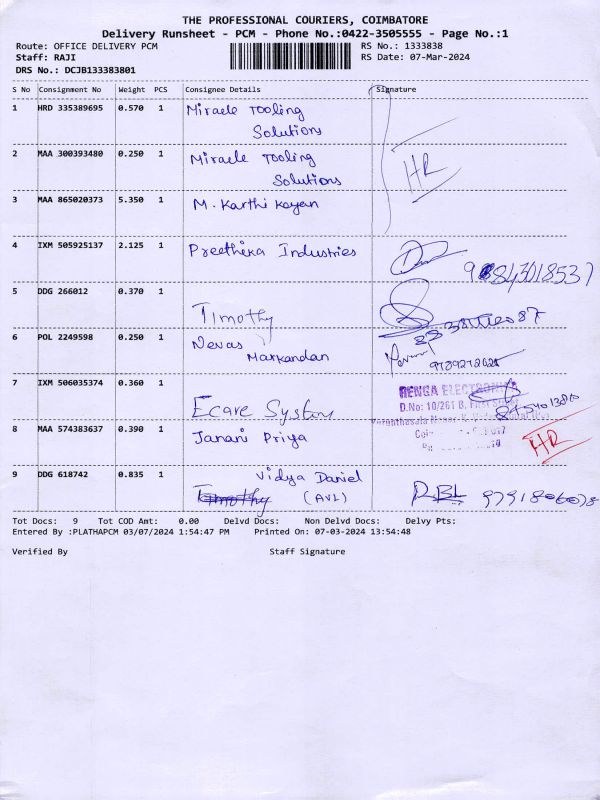 THE PROFESSIONAL COURIERS, COIMBATORE
Delivery Runsheet - PCM - Phone No.:0422-3505555 - Page No.:1
Route: OFFICE DELIVERY PCM
RS No.: 1333838
Staff: RAJI
RS Date: 07-Mar-2024
DRS No.: DCJB133383801
S No Consignment No Weight PCS Consignee Details Signature
1 HRD 335389695 0.570 1 Miracle Tooling
Solutions
2 MAA 300393480 0.250 1 Miracle Tooling
Solutions
HR
3 MAA 865020373 5.350 1 M. Karthikayan
4 IXM 505925137 2.125 1 Preethika Industries
5 DDG 266012 0.370 1 Timothy
6 POL 2249598 0.250 1 Nevas
Markandan
7 IXM 506035374 0.360 1 Ecare System
RENGA ELECTRONICS
D.No: 10/261 B, First Street
8 MAA 574383637 0.390 1 Janani Priya
HR
9 DDG 618742 0.835 1 Vidya Daniel
Timothy (AVL)
Tot Docs: 9 Tot COD Amt: 0.00 Delvd Docs: Non Delvd Docs: Delvy Pts:
Entered By :PLATHAPCM 03/07/2024 1:54:47 PM Printed On: 07-03-2024 13:54:48
Verified By Staff Signature